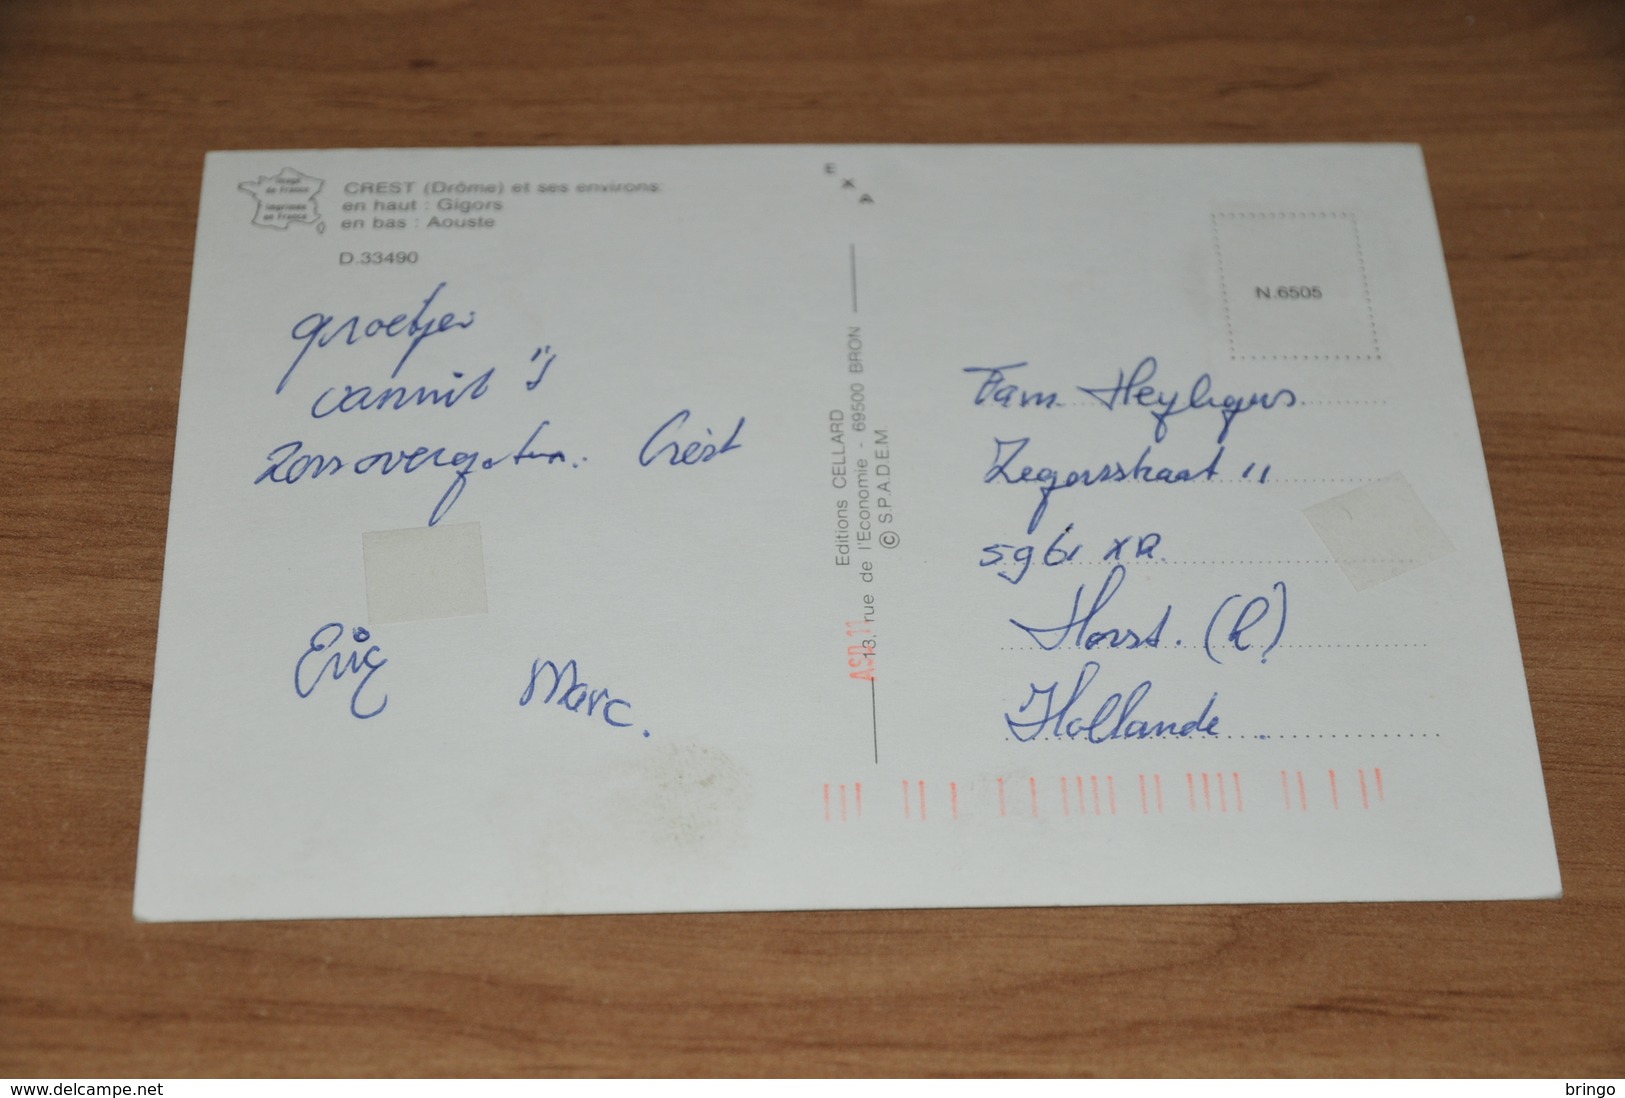 Image
de France
imprimée
en France
CREST (Drôme) et ses environs:
en haut : Gigors
en bas : Aouste
D.33490
groetjes
vannit 's
zonovergoten. Crèst
Eric
Marc.
EXA
Editions CELLARD
13, rue de l'Economie - 69500 BRON
© S.P.A.D.E.M
ASD 11
N.6505
Fam. Heyligers.
Zegersstraat 11
5961 XR
Horst. (L)
Hollande.
www.delcampe.net
bringo